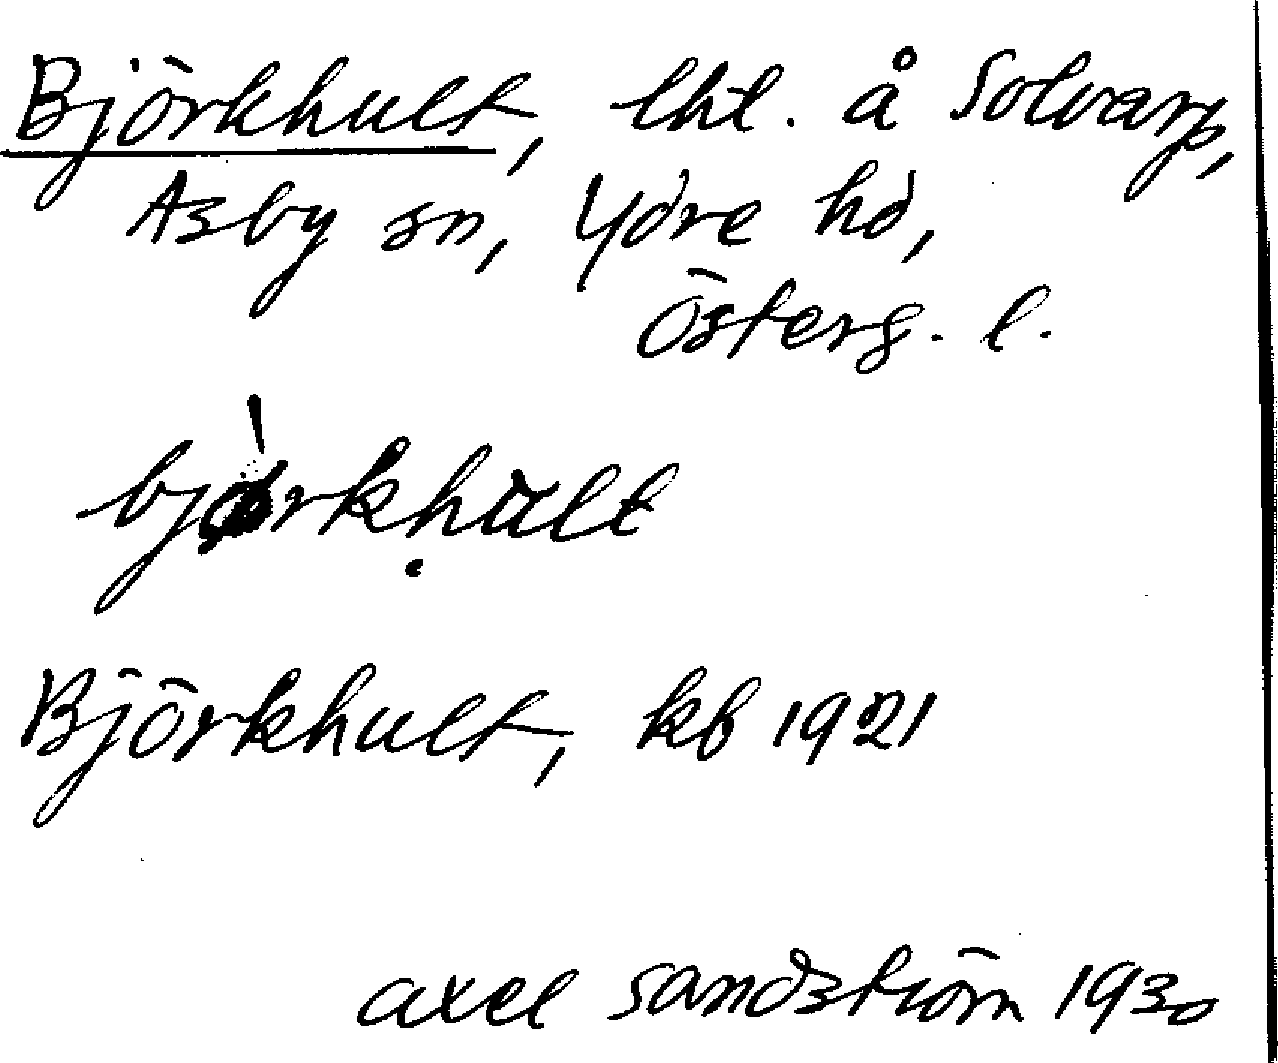 Björkhult, lht. å Solvarp,
Asby sn, Ydre hd,
Österg. l.
bjòrkḥùlt
Björkhult, kb 1921
Axel Sandström 1930